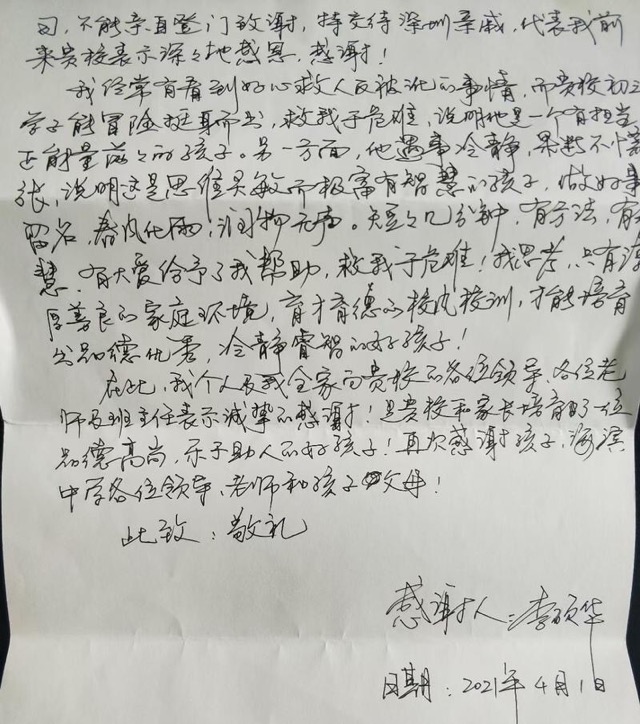 司,不能亲自登门致谢,特交待深圳亲戚,代表我前
来贵校表示深々地感恩,感谢!
我经常有看到好心救人反被讹的事情,而贵校初三
学子能冒险挺身而出,救我于危难,说明他是一个有担当
正能量满々的孩子。另一方面,他遇事冷静,果断不慌
张,说明这是思维灵敏而极富有智慧的孩子,做好事
留名,春风化雨,润物无声。短短几分钟,有方法,有
慧,有大爱给予了我帮助,救我于危难!我思考,只有
厚善良的家庭环境,育才育德的校风校训,才能培育
出品德优秀,冷静睿智的好孩子!
在此,我个人及我全家向贵校的各位领导、各位老
师及班主任表示诚挚的感谢!是贵校和家长培育了一位
品德高尚,乐于助人的好孩子!再次感谢孩子,海滨
中学各位领导、老师和孩子父母!
此致:敬礼
感谢人:李华
日期:2021年4月1日